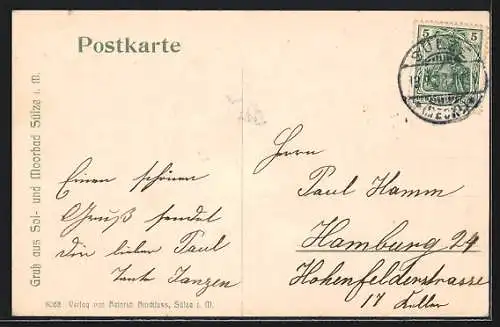 Postkarte
5 5
SÜLZE
(MECKL)
Gruß aus Sol- und Moorbad Sülze i. M.
Einen schönen
Gruß sendet
Dir lieber Paul
Tante Janzen
Herrn
Paul Hamm
Hamburg 24
Hohenfelderstrasse
17 Keller
Verlag von Heinrich Sülze i. M.